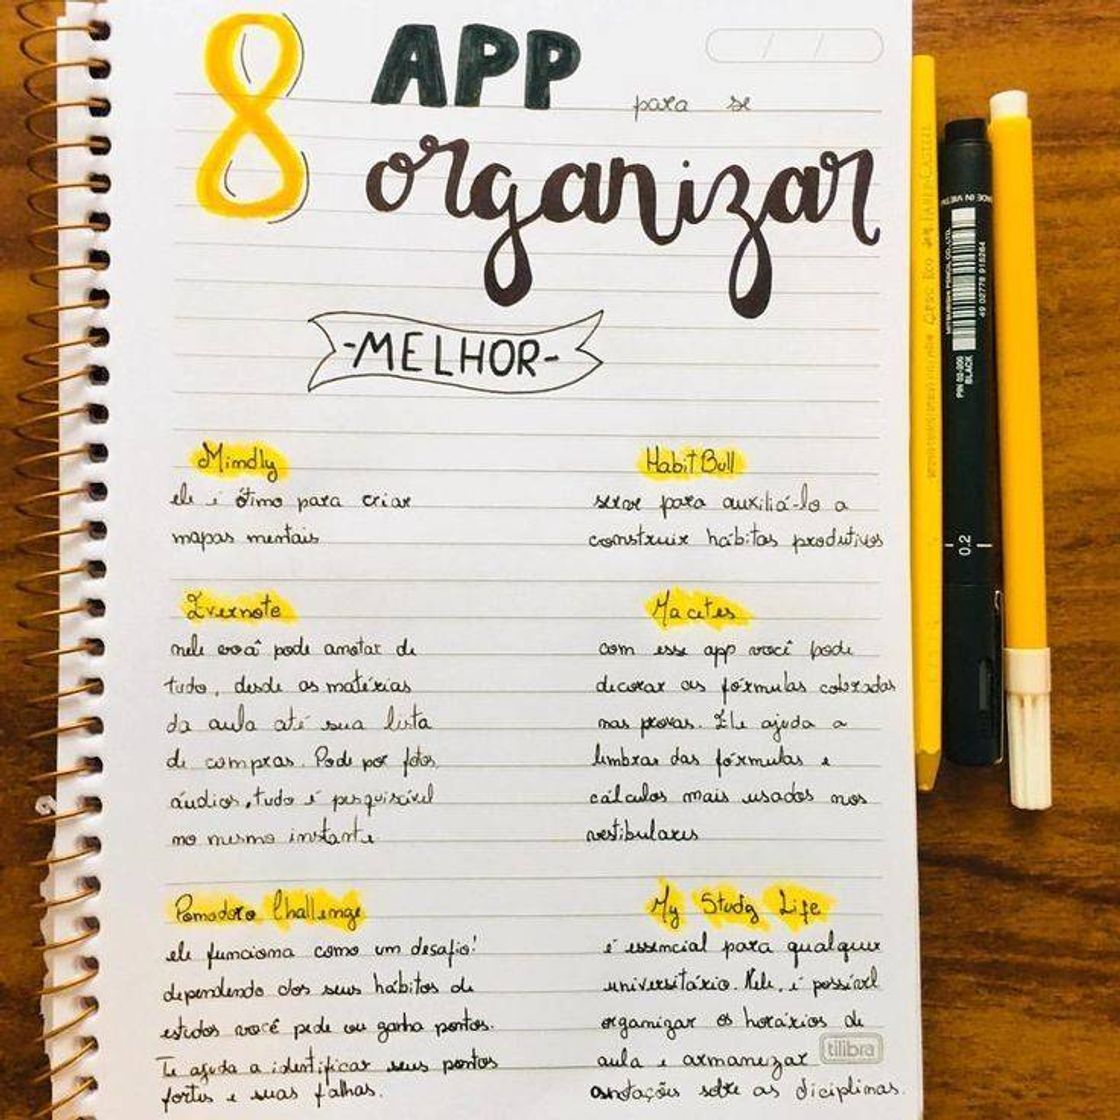 8 APP para se
organizar
-MELHOR-
Mindly
ele é ótimo para criar
mapas mentais
Habit Bull
serve para auxiliá-lo a
construir hábitos produtivos
Evernote
nele você pode anotar de
tudo, desde as matérias
da aula até sua lista
de compras. Pode por fotos,
áudios, tudo é pesquisável
no mesmo instante
Macetes
com esse app você pode
decorar as fórmulas cobradas
nas provas. Ele ajuda a
lembrar das fórmulas e
cálculos mais usados nos
vestibulares
Pomodoro Challenge
ele funciona como um desafio!
dependendo dos seus hábitos de
estudos você pede ou ganha pontos.
Te ajuda a identificar seus pontos
fortes e suas falhas.
My Study Life
é essencial para qualquer
universitário. Nele, é possível
organizar os horários de
aula e armanezar
anotações sobre as diciplinas.
tilibra
MADE IN VIETNAM
MITSUBISHI PENCIL CO., LTD.
49 02778 915264
PIN 02-200
BLACK
0.2